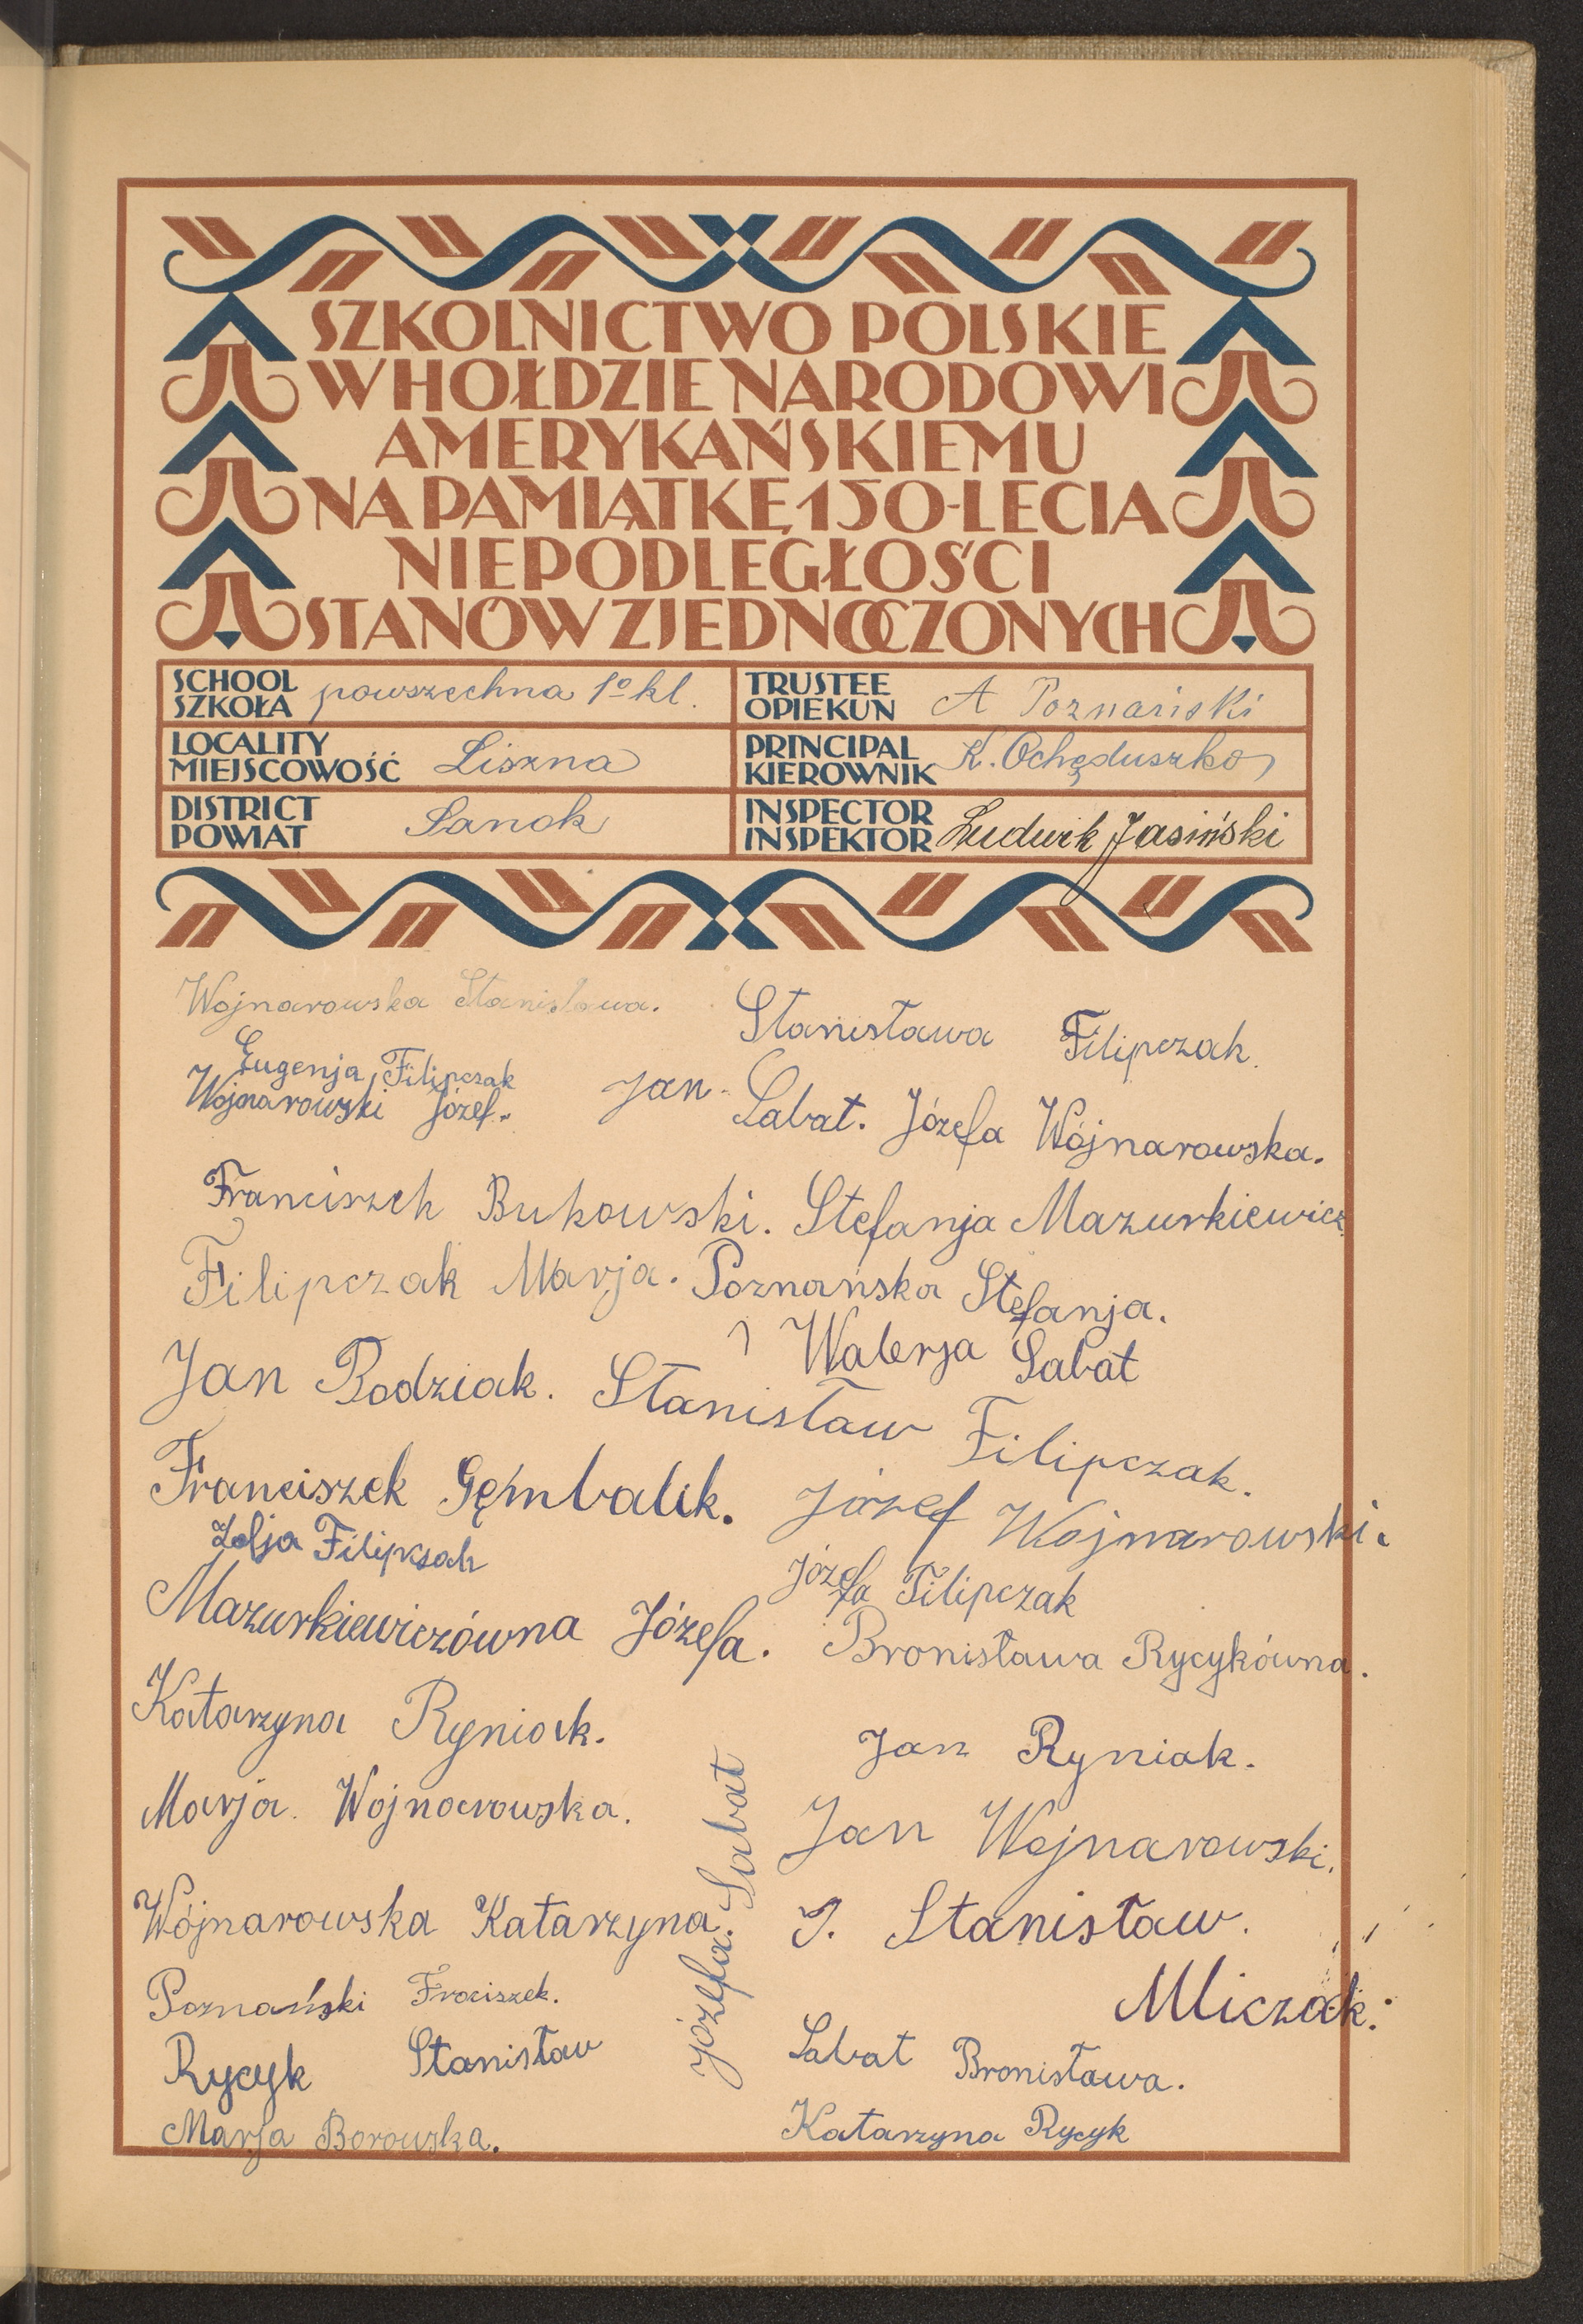 SZKOLNICTWO POLSKIE
W HOŁDZIE NARODOWI
AMERYKAŃSKIEMU
NA PAMIĄTKĘ 150-LECIA
NIEPODLEGŁOŚCI
STANÓW ZJEDNOCZONYCH
SCHOOL
SZKOŁA powszechna 1º kl.
TRUSTEE
OPIEKUN A Poznański
LOCALITY
MIEJSCOWOŚĆ Liszna
PRINCIPAL
KIEROWNIK K. Ochęduszko
DISTRICT
POWIAT Sanok
INSPECTOR
INSPEKTOR Ludwik Jasiński
Wojnarowska Stanisława.
Stanisława Filipczak.
Eugenja Filipczak
Wojnarowski Józef.
Jan Sabat. Józefa Wójnarowska.
Franciszek Bukowski. Stefanja Mazurkiewicz
Filipczak Marja. Poznańska Stefanja.
Walerja Sabat
Jan Bodziak. Stanisław Filipczak.
Franciszek Gęmbalik. Józef Wojnarowski.
Zofja Filipksak
Józefa Filipczak
Mazurkiewiczówna Józefa. Bronisława Rycykówna.
Katarzyna Ryniak.
Jan Ryniak.
Marja. Wojnarowska.
Jan Wojnarowski.
Józefa. Sabat
Wójnarowska Katarzyna
J. Stanisław.
Mliczak:
Poznański Frociszek.
Rycyk Stanisław
Sabat Bronisława.
Marja Borowska.
Katarzyna Rycyk